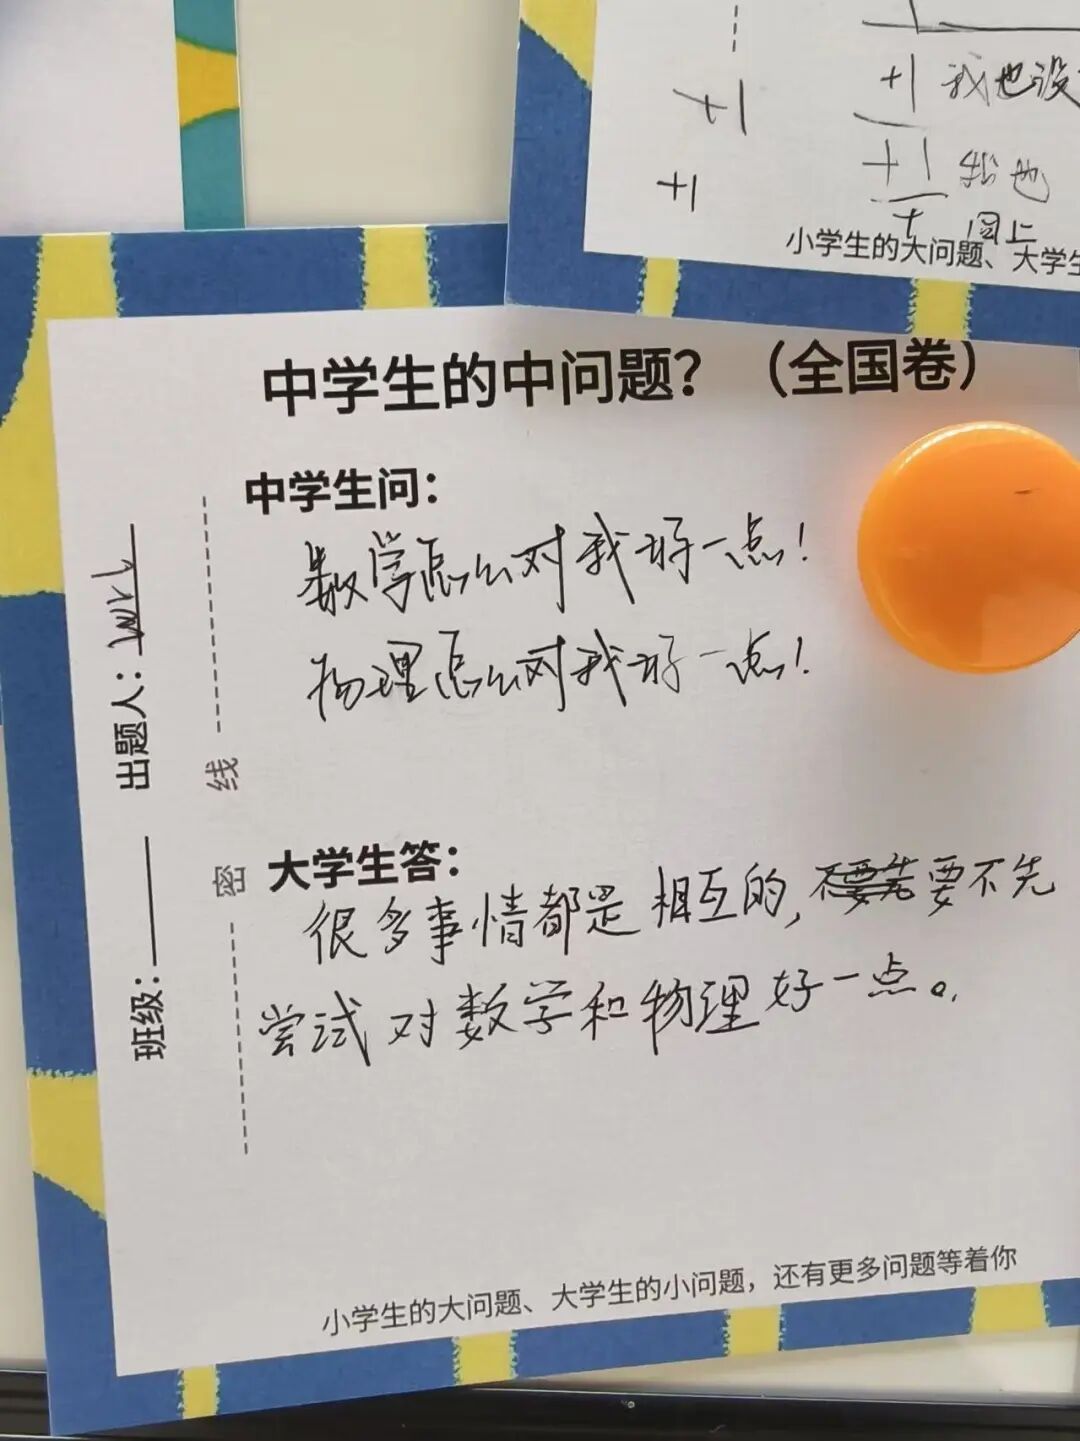 +1
+1
+1 我也没
+1 我也
+ 同上
小学生的大问题、大学生
中学生的中问题？（全国卷）
中学生问：
数学怎么对我好一点！
物理怎么对我好一点！
大学生答：
很多事情都是相互的，不要先要不先
尝试对数学和物理好一点。
小学生的大问题、大学生的小问题，还有更多问题等着你
班级：
出题人：
密
线